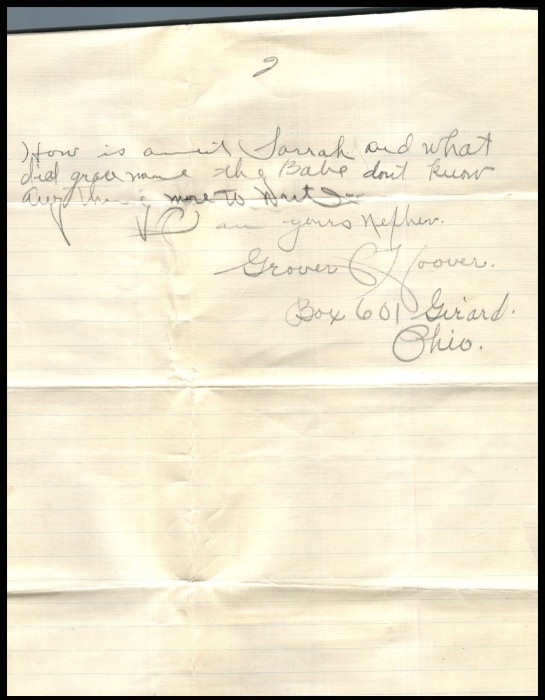 2
How is aunt Sarrah and what
did grace name the Babe dont know
anything more to
I am yours Nephew.
Grover C Hoover.
Box 601 Girard.
Ohio.